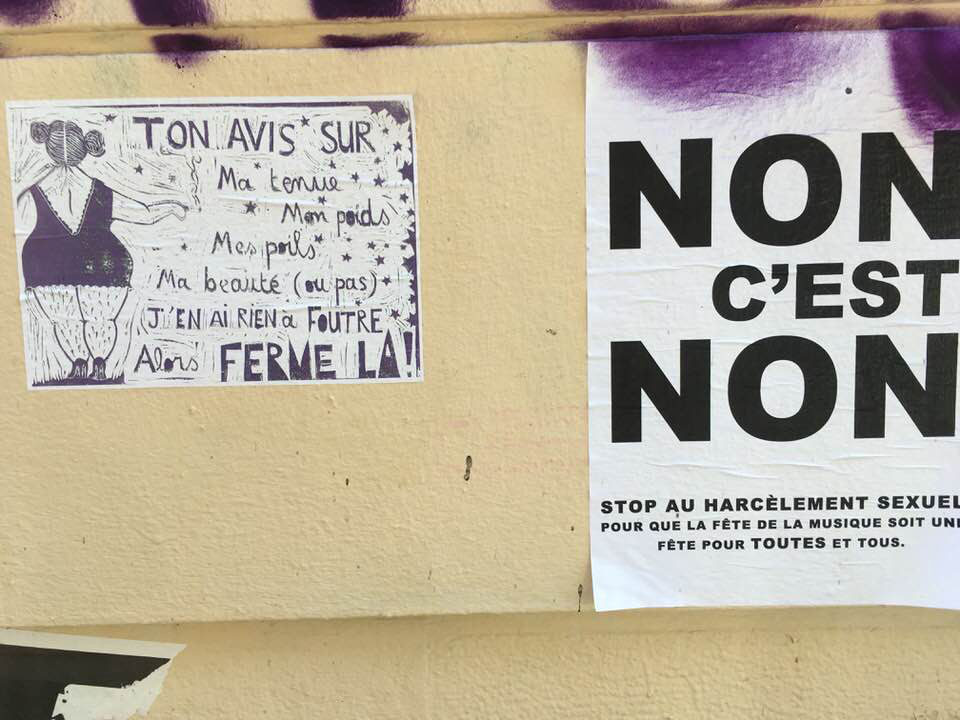 TON AVIS SUR
Ma tenue
Mon poids
Mes poils
Ma beauté (ou pas)
J'EN AI RIEN à FOUTRE
Alors FERME LA!
NON
C'EST
NON
STOP AU HARCÈLEMENT SEXUEL
POUR QUE LA FÊTE DE LA MUSIQUE SOIT UNE
FÊTE POUR TOUTES ET TOUS.